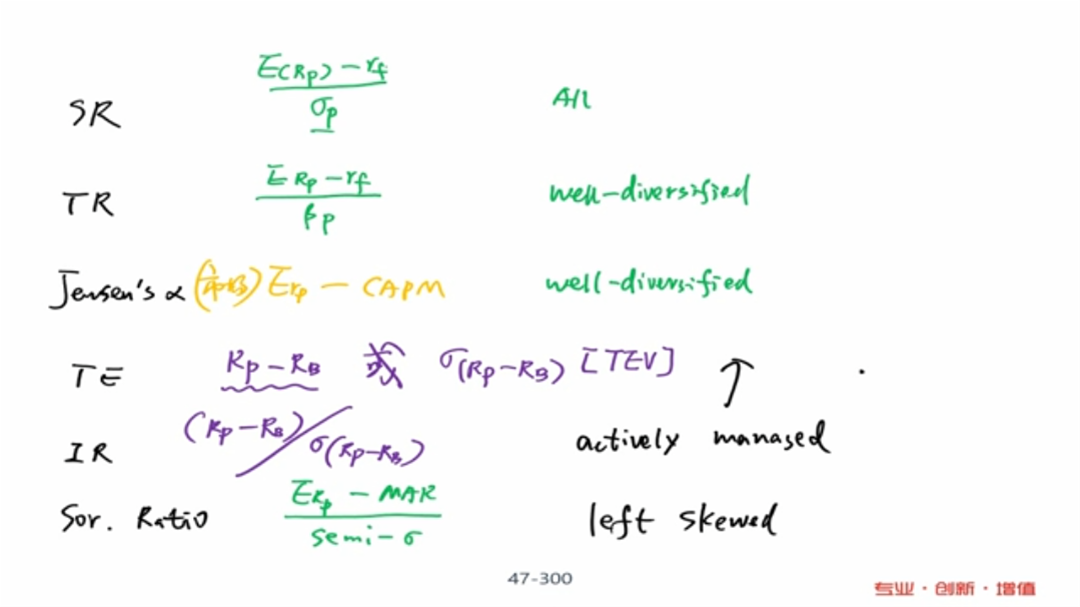 SR E(Rp) - rf / σp All
TR E Rp - rf / βp well-diversified
Jensen's α () Erp - CAPM well-diversified
TE Rp - RB 或 σ(Rp - RB) [TEV] ↑
IR (Rp - RB) / σ(Rp - RB) actively managed
Sor. Ratio Erp - MAR / semi-σ left skewed
47-300
专业·创新·增值